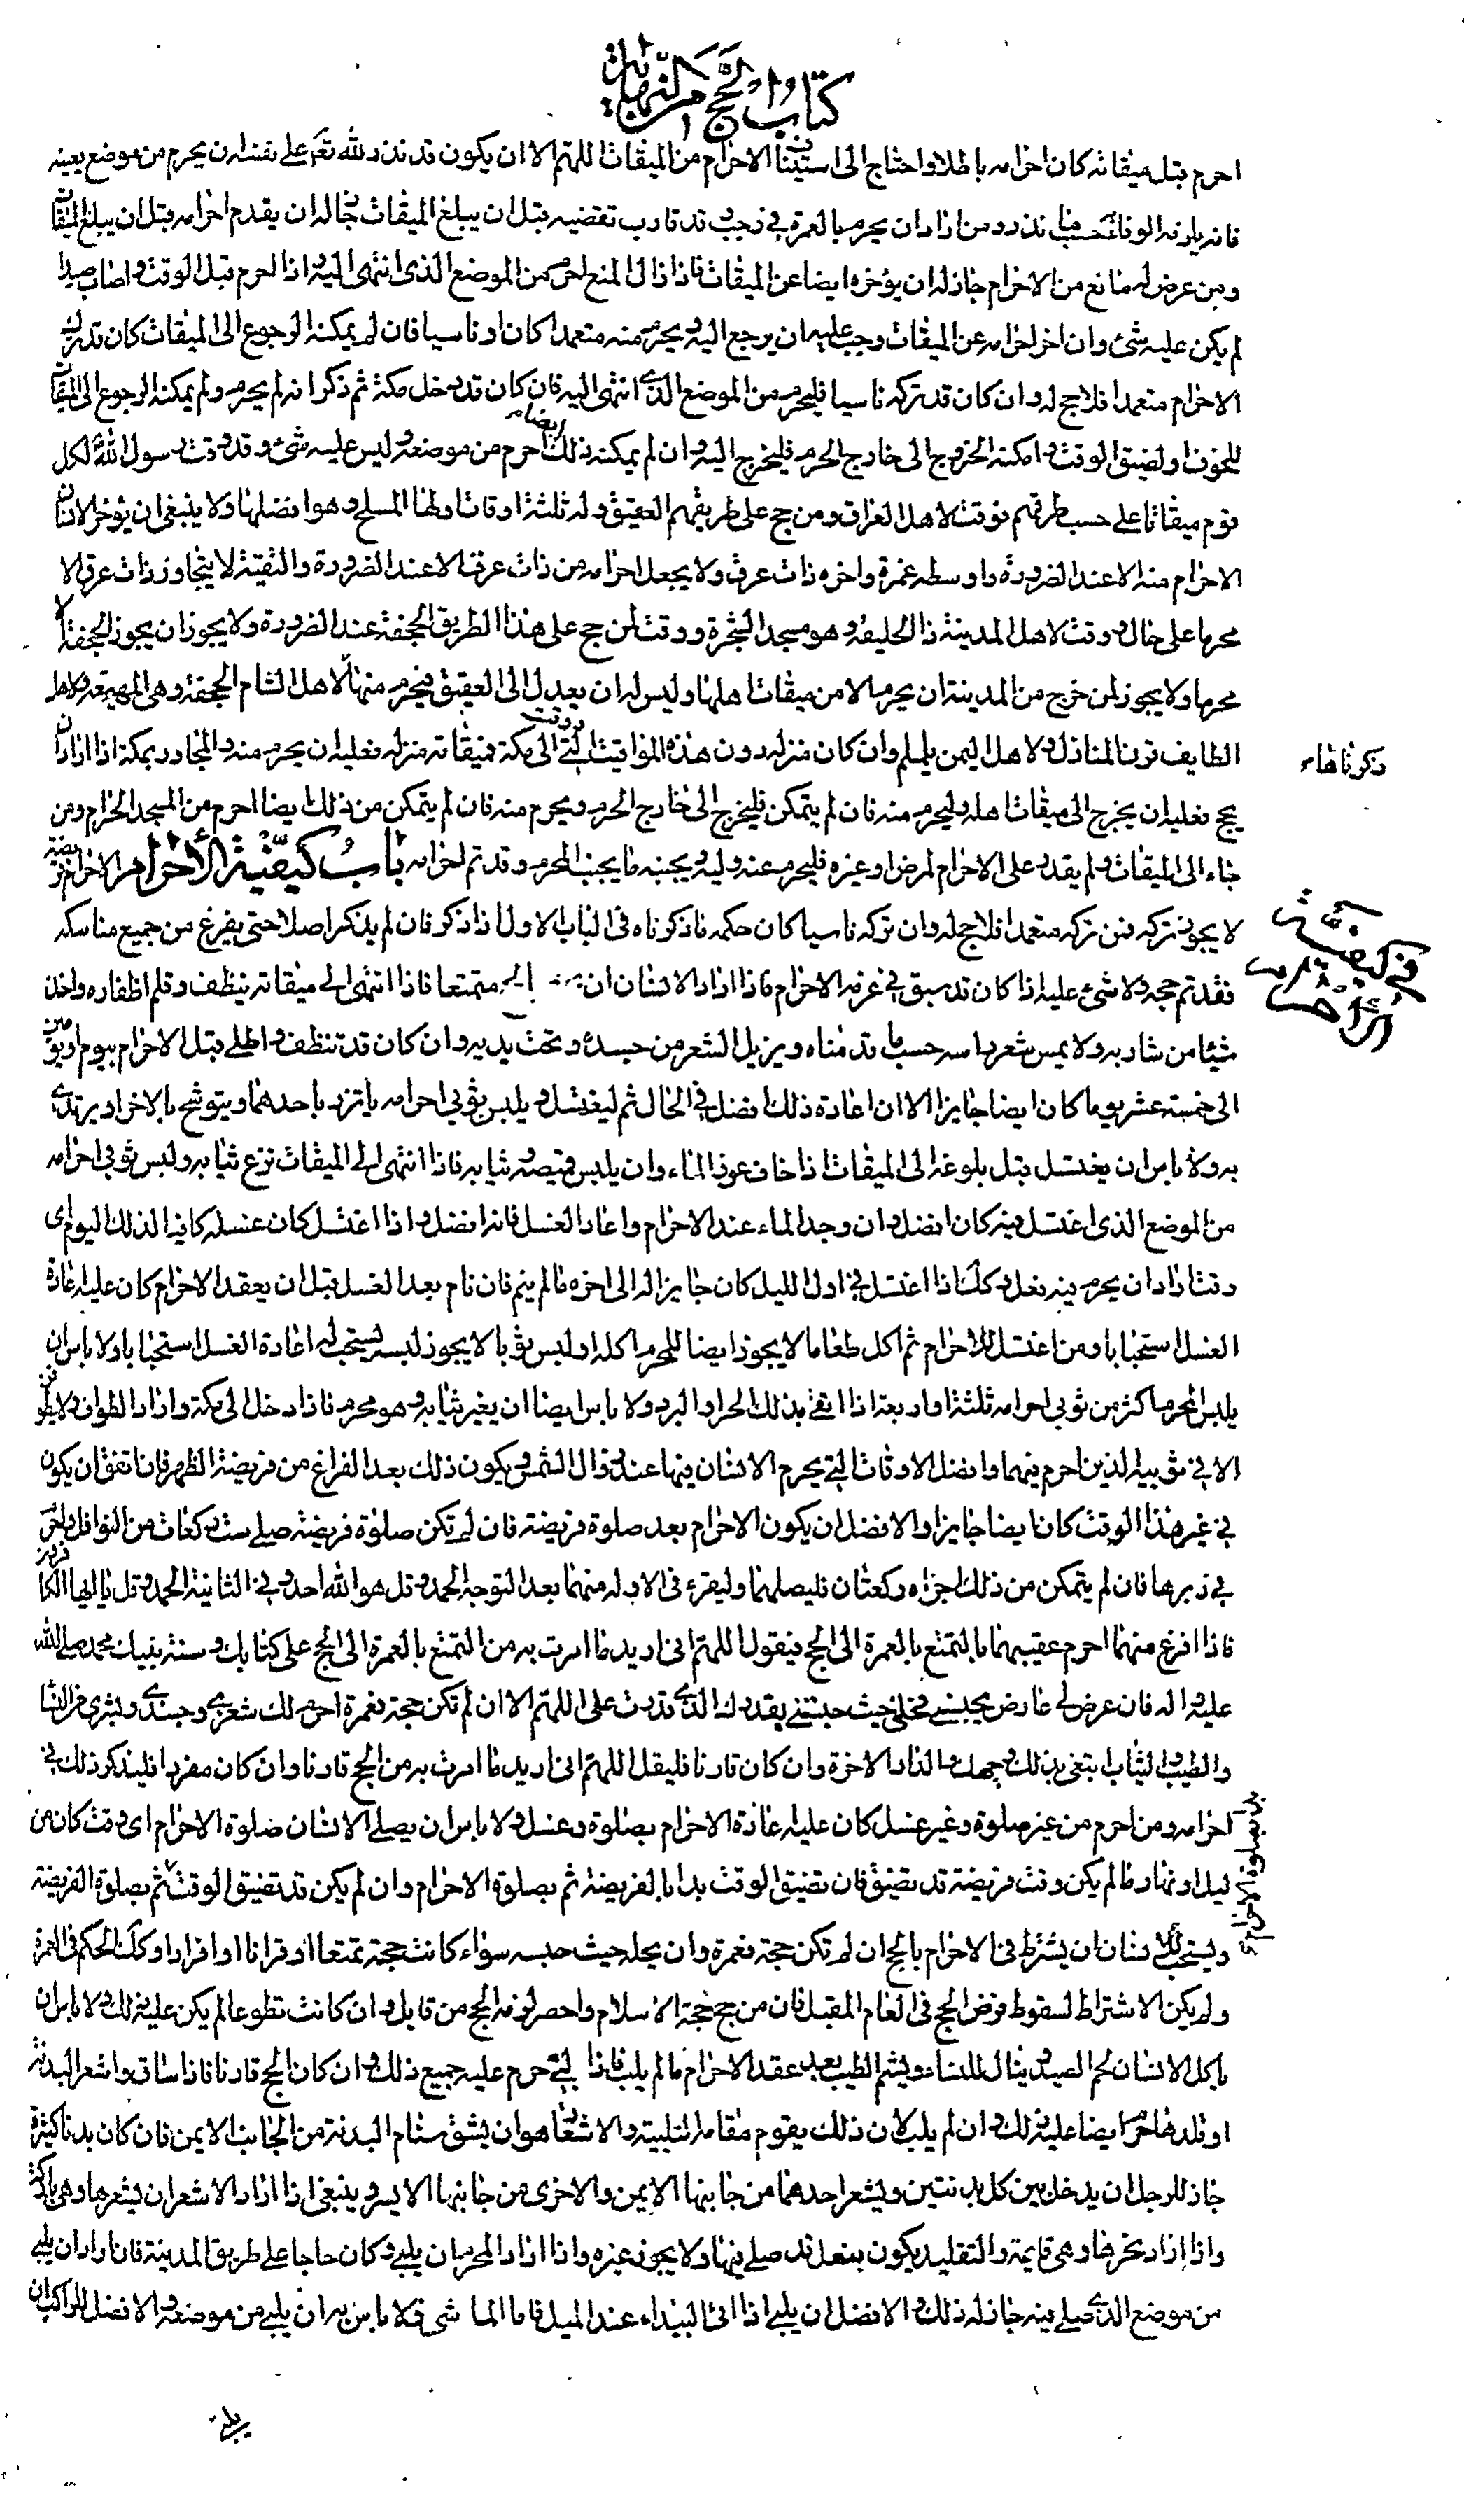 كتاب الحج من النهاية
احرم قبل ميقاته كان احرامه باطلا واحتاج الى استيناف الاحرام من الميقات اللهم الا ان يكون قد نذر لله تعالى على نفسه ان يحرم من موضع بعينه
فانه يلزمه الوفاء به حسب ما نذر ومن اراد ان يحرم بالعمرة في رجب وقد قارب تقضيه قبل ان يبلغ الميقات جاز له ان يقدم احرامه قبل ان يبلغ الميقات
ومن عرض له مانع من الاحرام جاز له ان يؤخره ايضا عن الميقات فاذا زال المنع احرم من الموضع الذى انتهى اليه واذا احرم قبل الوقت واصاب صيدا
لم يكن عليه شئ وان اخر احرامه عن الميقات وجب عليه ان يرجع اليه ويحرم منه متعمدا كان او ناسيا فان لم يمكنه الرجوع الى الميقات كان قد ترك
الاحرام متعمدا فلا حج له وان كان قد تركه ناسيا فليحرم من الموضع الذى انتهى اليه فان كان قد دخل مكة ثم ذكر انه لم يحرم ولم يمكنه الرجوع الى الميقات
للخوف او لضيق الوقت وامكنه الخروج الى خارج الحرم فليخرج اليه وان لم يمكنه ذلك ايضا احرم من موضعه وليس عليه شئ وقد وقت رسول الله لكل
قوم ميقاتا على حسب طرقهم فوقت لاهل العراق ومن حج على طريقهم العقيق وله ثلثة اوقات اولها المسلح وهو افضلها ولا ينبغى ان يؤخر الانسان
الاحرام منه الا عند الضرورة واوسطه غمرة واخره ذات عرق ولا يجعل احرامه من ذات عرق الا عند الضرورة والتقية لا يتجاوز ذات عرق الا
محرما على حال ووقت لاهل المدينة ذا الحليفة وهو مسجد الشجرة ووقت لمن حج على هذا الطريق الجحفة عند الضرورة ولا يجوز ان يجوز الجحفة الا
محرما ولا يجوز لمن خرج من المدينة ان يحرم الا من ميقات اهلها وليس له ان يعدل الى العقيق فيحرم منها لاهل الشام الجحفة وهى المهيعة ولاهل
الطايف قرن المنازل ولاهل اليمن يلملم وان كان منزله دون هذه المواقيت التى الى مكة فميقاته منزله فعليه ان يحرم منه والمجاور بمكة اذا اراد ان
ذكرناها
يحج فعليه ان يخرج الى ميقات اهله وليحرم منه فان لم يتمكن فليخرج الى خارج الحرم ويحرم منه فان لم يتمكن من ذلك ايضا احرم من المسجد الحرام ومن
جاء الى الميقات ولم يقدر على الاحرام لمرض او غيره فليحرم عنه وليه ويجنبه ما يجنب المحرم وقد تم احرامه باب كيفية الأحرام الاحرام فريضة
لا يجوز تركه فمن تركه متعمدا فلا حج له وان تركه ناسيا كان حكمه ما ذكرناه فى الباب الاول اذا ذكر فان لم يذكر اصلا حتى يفرغ من جميع مناسكه
في كيفية الاحرام
فقد تم حجه ولا شئ عليه اذا كان قد سبق في عزمه الاحرام فاذا اراد الانسان ان الحج متمتعا فاذا انتهى الى ميقاته ينظف وقلم اظفاره واخذ
شيئا من شاربه ولا يمس شعر راسه حسب ما قدمناه ويزيل الشعر من جسده وتحت يديه وان كان قد تنظف واطلى قبل الاحرام بيوم او يومين
الى خمسة عشر يوما كان ايضا جايزا الا ان اعادة ذلك افضل فى الحال ثم ليغتسل ويلبس ثوبى احرامه ياتزر باحدهما ويتوشح بالاخر او يرتدى
به ولا باس ان يغتسل قبل بلوغه الى الميقات اذا خاف عوز الماء وان يلبس قميصه وثيابه فاذا انتهى الى الميقات نزع ثيابه ولبس ثوبى احرامه
من الموضع الذى اغتسل فيه كان افضل وان وجد الماء عند الاحرام واعاد الغسل فانه افضل واذا اغتسل كان غسله كافيا لذلك اليوم اى
وقت اراد ان يحرم فيه فعل وكذلك اذا اغتسل فى اول الليل كان جايزا له الى اخره ما لم ينم فان نام بعد الغسل قبل ان يعقد الاحرام كان عليه اعادة
الغسل استحبابا ومن اغتسل للاحرام ثم اكل طعاما لا يجوز ايضا للمحرم اكله او لبس ثوبا لا يجوز لبسه يستحب له اعادة الغسل استحبابا ولا باس ان
يلبس المحرم اكثر من ثوبى احرامه ثلثة او اربعة اذا اتقى بذلك الحر او البرد ولا باس ايضا ان يغير ثيابه وهو محرم فاذا دخل الى مكة واراد الطواف ولا يطوفن
الا فى ثوبيه الذين احرم فيهما وافضل الاوقات التى يحرم الانسان فيها عند زوال الشمس ويكون ذلك بعد الفراغ من فريضة الظهر فان اتفق ان يكون
فى غير هذا الوقت كان ايضا جايزا والافضل ان يكون الاحرام بعد صلوة فريضة فان لم تكن صلوة فريضة صلى ست ركعات من النوافل واحرم
فى دبرها فان لم يتمكن من ذلك اجزاه ركعتان فليصلهما وليقرء فى الاولة منهما بعد التوجه الحمد وقل هو الله احد وفى الثانية الحمد وقل يا ايها الكافرون
فاذا فرغ منهما احرم عقيبهما بالتمتع بالعمرة الى الحج فيقول اللهم انى اريد ما امرت به من التمتع بالعمرة الى الحج على كتابك وسنة نبيك محمد صلى الله
عليه واله فان عرض لى عارض يحبسنى فحلنى حيث حبستنى بقدرك الذى قدرت على اللهم الا ان لم تكن حجة فعمرة احرم لك شعرى وجسدى وبشرى من النساء
والطيب والثياب ابتغى بذلك وجهك والدار الاخرة وان كان قارنا فليقل اللهم انى اريد ما امرت به من الحج قارنا وان كان مفردا فليذكر ذلك فى
احرامه ومن احرم من غير صلوة وغير غسل كان عليه اعادة الاحرام بصلوة وغسل ولا باس ان يصلى الانسان صلوة الاحرام اى وقت كان من
ليل او نهار ما لم يكن وقت فريضة قد تضيق فان تضيق الوقت بدا بالفريضة ثم بصلوة الاحرام وان لم يكن قد تضيق الوقت ثم بصلوة الفريضة
بدأ بصلوة الاحرام
ويستحب للانسان ان يشترط فى الاحرام بالحج ان لم تكن حجة فعمرة وان يحله حيث حبسه سواء كانت حجته تمتعا او قرانا او افرادا وكذلك الحكم فى العمرة
ولم يكن الاشتراط لسقوط فرض الحج فى العام المقبل فان من حج حجة الاسلام واحصر لزمه الحج من قابل وان كانت تطوعا لم يكن عليه ذلك ولا باس ان
ياكل الانسان لحم الصيد وينال النساء ويشم الطيب بعد عقد الاحرام ما لم يلب فاذا لبى حرم عليه جميع ذلك وان كان الحج قارنا فاذا ساق واشعر البدنة
او قلدها حرم ايضا عليه ذلك وان لم يلب لان ذلك يقوم مقام التلبية والاشعار هو ان يشق سنام البدنة من الجانب الايمن فان كان بدنا كثيرة
جاز للرجل ان يدخل بين كل بدنتين ويشعر احدهما من جانبها الايمن والاخرى من جانبها الايسر وينبغى اذا اراد الاشعار ان يشعرها وهى باركة
واذا اراد نحرها وهى قايمة والتقليد يكون بنعل قد صلى فيها ولا يجوز غيره واذا اراد المحرم ان يلبى وكان حاجا على طريق المدينة فان اراد ان يلبى
من موضع الذى صلى فيه جاز له ذلك والافضل ان يلبى اذا اتى البيداء عند الميل فاما الماشى فلا باس به ان يلبى من موضعه والافضل للراكب ان
يلبى